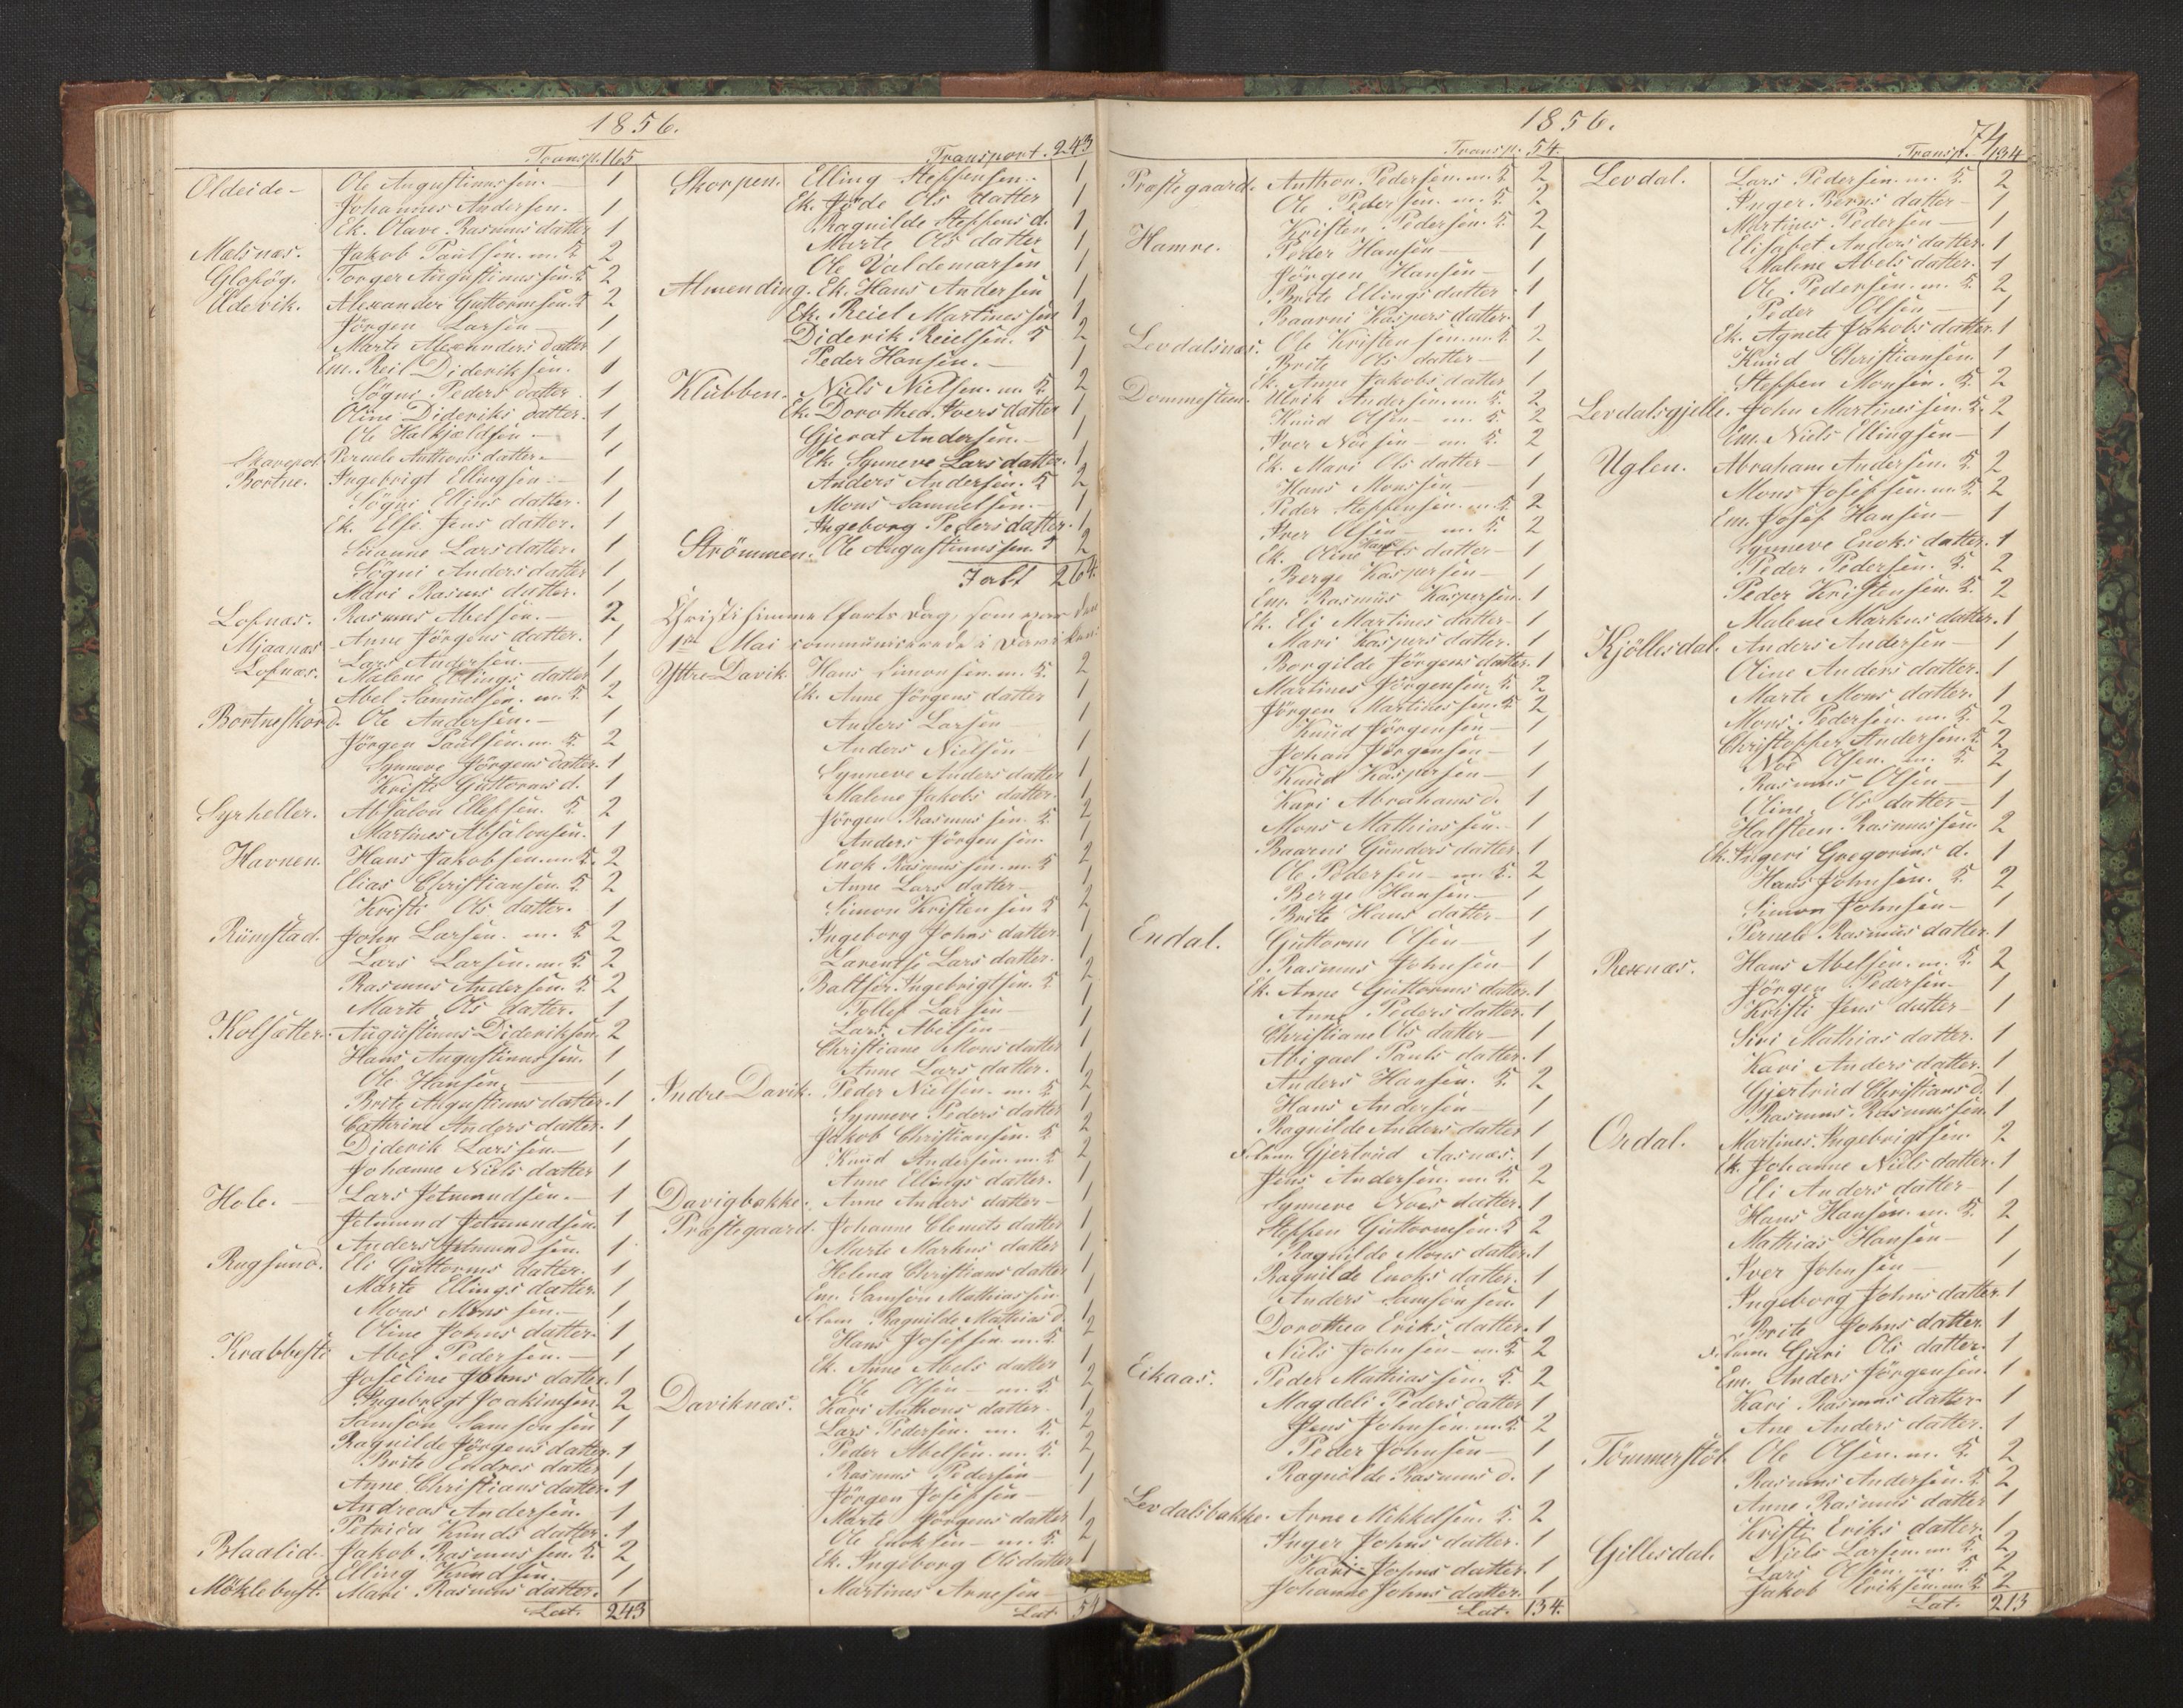 1856.
Transp. 165
Oldeide - Ole Augustinussen. - 1
Johannes Andersen. - 1
Ek. Olave Rasmus datter 1
Mælsnæs. Jakob Paulsen. m. K. 2
Torger Augustinussen. K 2
Udevik. Alexander Guttormsen. K 2
Jörgen Larsen - 1
Marte Alexanders datter 1
Em. Reil Diderik sen. 1
Sögni Peders datter. 1
Oline Dideriks datter. 1
Ole Halkjældsen - 1
Pernele Anthons datter - 1
Bortne. Ingebrigt Ellingsen - 1
Sögni Elias datter. 1
Ek. Else Jens datter. 1
Susanne Lars datter. 1
Sögni Anders datter 1
Mari Rasmus datter. 1
Lofnæs. Rasmus Abelsen. - 2
Mjaanæs Anne Jörgens datter. 1
Lofnæs. Lars Andersen. - 1
Malene Ellings datter 1
Abel Samuelsen. m. K 2
Bortneskord. Ole Andersen. - 1
Jörgen Paulsen. m. K. 2
Synneve Jörgens datter. 1
Kristi Guttorms d. 1
Syrheller. Absalon Ellefsen. K. 2
Martines Absalonsen. 1
Havnen. Hans Jakobsen. m. K. 2
Elias Christiansen. K. 2
Kristi Ols datter. 1
Rümstad. John Larsen. m. K 2
Lars Larsen. m. K 2
Rasmus Andersen. K. 2
Marte Ols datter. 1
Kolsætter. Augustinus Dideriksen 2
Hans Augustinussen. 1
Ole Hansen. - 1
Brite Augustinus datter. 1
Cathrine Anders datter. 1
Diderik Larssen - 1
Johanne Niels datter 1
Hole. - Lars Jetmundsen. - 1
Jetmund Jetmundsen. 1
Anders Jetmundsen. 1
Rugsund. Eli Guttorms datter. 1
Marte Ellings datter. 1
Mons Monssen. - 1
Oline Johns datter. 1
Krabbesti Abel Pedersen. - 1
Joseline Johns datter. 1
Ingebrigt Joakimsen. 2
Samson Samsonsen 1
Ragnilde Jörgens datter. 1
Brite Endres datter 1
Anne Christians datter. 1
Andreas Andersen. 1
Petrica Knuds datter. 1
Blaalid. Jakob Rasmussen. K. 2
Elling Knudsen. 1
Möklebust. Mari Rasmus datter. 1
Lat. 243
Transport. 243
Skorpen. Elling Steffensen. 1
Ek. Jöde Ols datter 1
Ragnilde Steffens d. 1
Marte Ols datter 1
Ole Valdemarsen 1
Almending. Ek. Hans Andersen 1
Ek. Reiel Martinessen 1
Diderik Reielsen. K 2
Peder Hansen. - 1
Klubben. Niels Nielsen. m. K. 2
Ek. Dorothea Ivers datter 1
Gjerat Andersen. - 1
Ek. Synneve Lars datter. 1
Anders Andersen. K 2
Mons Samuelsen. - 1
Ingeborg Peders datter. 1
Strömmen. Ole Augustinussen. K 2
Ialt 264.
Christi himmelfarts dag, som var den
1ste Mai communicerede i Davik
Yttre Davik. Hans Simonsen. m. K. 2
Ek. Anne Jörgens datter 1
Anders Larsen 1
Anders Nielsen - 1
Synneve Anders datter 1
Malene Jakobs datter. 1
Jörgen Rasmussen. K. 2
Anders Jörgensen. 1
Enok Rasmussen. m. K 2
Anne Lars datter - 1
Simon Kristensen K 2
Ingeborg Johns datter. 1
Larentse Lars datter. 1
Baltser Ingebrigtsen. K 2
Tollef Larsen - 1
Lars Abelsen - 1
Christiane Mons datter 1
Anne Lars datter. 1
Indre Davik. Peder Nielsen. m. K 2
Synneve Peders datter 1
Jakob Christiansen. K 2
Knud Andersen. m. K 2
Anne Ellings datter. 1
Davigbakke. Anne Anders datter - 1
Præstegaard. Johanne Clemets datter 1
Marte Markus datter 1
Helena Christians datter 1
Em. Samson Mathiassen 1
Ragnilde Mathias d. 1
Hans Josefsen. m. K. 2
Ek. Anne Abels datter 1
Ole Olsen - m. K. 2
Daviknæs. Kari Anthons datter. 1
Lars Pedersen. m. K. 2
Peder Abelsen. m. K. 2
Rasmus Pedersen - 1
Jörgen Josefsen - 1
Marte Jörgens datter 1
Ole Enoksen - m. K. 2
Ek. Ingeborg Ols datter 1
Martines Arnesen - 1
Lat. 54
1856.
74
Transp. 54.
Præstegaard. Anthon. Pedersen. m. K 2
Ole Pedersen. m. K. 2
Kristen Pedersen. K. 2
Hamre. Peder Hansen - 1
Jörgen Hansen - 1
Brite Ellings datter - 1
Baarni Kaspers datter. 1
Levdalsnæs. Ole Kristensen. m. K. 2
Brite Ols datter - 1
Ek. Anne Jakobs datter 1
Dommesteen. Ulrik Andersen. m. K. 2
Knud Olsen - m. K. 2
Iver Noesen - m. K. 2
Ek. Mari Ols datter - 1
Hans Monssen - 1
Peder Steffensen. m. K 2
Iver Olsen - m. K. 2
Ek. Oline Ols datter - 1
Berge Kaspersen - 1
Em. Rasmus Kaspersen. 1
Ek. Eli Martines datter - 1
Mari Kaspers datter. 1
Borgilde Jörgens datter. 1
Martines Jörgensen. K. 2
Jörgen Martinessen. K 2
Knud Jörgensen - 1
Johan Jörgensen - 1
Knud Kaspersen - 1
Kari Abrahams d. 1
Mons Mathiassen. - 1
Baarni Gunders datter. 1
Ole Pedersen - m. K. 2
Berge Hansen - 1
Brite Hans datter - 1
Endal. Guttorm Olsen - 1
Rasmus Johnsen - 1
Ek. Anne Guttorms datter. 1
Anne Peders datter. 1
Christiane Ols datter - 1
Abigael Pauls datter. 1
Anders Hansen. K. 2
Hans Andersen - 1
Ragnilde Anders datter 1
Gjertrud Aasnæs. 1
Jens Andersen. m. K 2
Synneve Noes datter. 1
Steffen Guttormsen. K 2
Ragnilde Mons datter. 1
Ragnilde Enoks datter. 1
Anders Samsonsen. 1
Dorothea Eriks datter. 1
Niels Johnsen - m. K. 2
Eikaas. Peder Mathiassen. K. 2
Magdeli Peders datter 1
Jens Johnsen. m. K. 2
Peder Johnsen - 1
Ragnilde Rasmus d. 1
Levdalsbakke. Arne Mikkelsen. K. 2
Inger Johns datter. 1
Kari Johns datter. 1
Johanne Johns datter. 1
Lat. 134.
Transp. 134
Levdal. Lars Pedersen. m. K. 2
Inger Berns datter - 1
Martines Pedersen - 1
Elisabet Anders datter. 1
Malene Abels datter. 1
Ole Pedersen. m. K. 2
Peder Olsen - 1
Ek. Agnete Jakobs datter. 1
Knud Christiansen. 1
Steffen Monsen. K. 2
Levdalsgjelle. John Martinessen. K. 2
Em. Niels Ellingsen - 1
Uglen. Abraham Andersen. K 2
Mons Josefsen. m. K. 2
Em. Josef Hansen - 1
Synneve Enoks datter. 1
Peder Pedersen. K. 2
Peder Kristensen. K. 2
Malene Markus datter. 1
Kjöllesdal. Anders Andersen - 1
Oline Anders datter. 1
Marte Mons datter. 1
Mons Pedersen. m. K. 2
Christoffer Andersen. K. 2
Noe Olsen. m. K. 2
Rasmus Olsen - 1
Oline Ols datter - 1
Halsteen Rasmussen. 2
Ek. Ingeri Gregorius d. 1
Hans Johnsen. K. 2
Simon Johnsen - 1
Pernele Rasmus datter. 1
Rexnæs. Hans Abelsen. m. K. 2
Jörgen Pedersen - 1
Kristi Jens datter - 1
Siri Mathias datter. 1
Kari Anders datter. 1
Gjertrud Christians d. 1
Rasmus Rasmussen. 1
Ordal. Martines Ingebrigtsen 2
Ek. Johanne Niels datter. 1
Eli Anders datter - 1
Hans Hansen. m. K. 2
Mathias Hansen - 1
Iver Johnsen - 1
Ingeborg Johns datter. 1
Brite Johns datter. 1
Guri Ols datter. 1
Em. Anders Jörgensen. 1
Kari Rasmus datter. 1
Ane Anders datter. 1
Tömmerstöl. Ole Olsen. m. K. 2
Rasmus Andersen. K 2
Anne Rasmus datter 1
Kristi Eriks datter. 1
Gillesdal. Niels Larsen. m. K. 2
Lars Olsen. m. K 2
Jakob Eriksen. m. K 2
Lat. 213